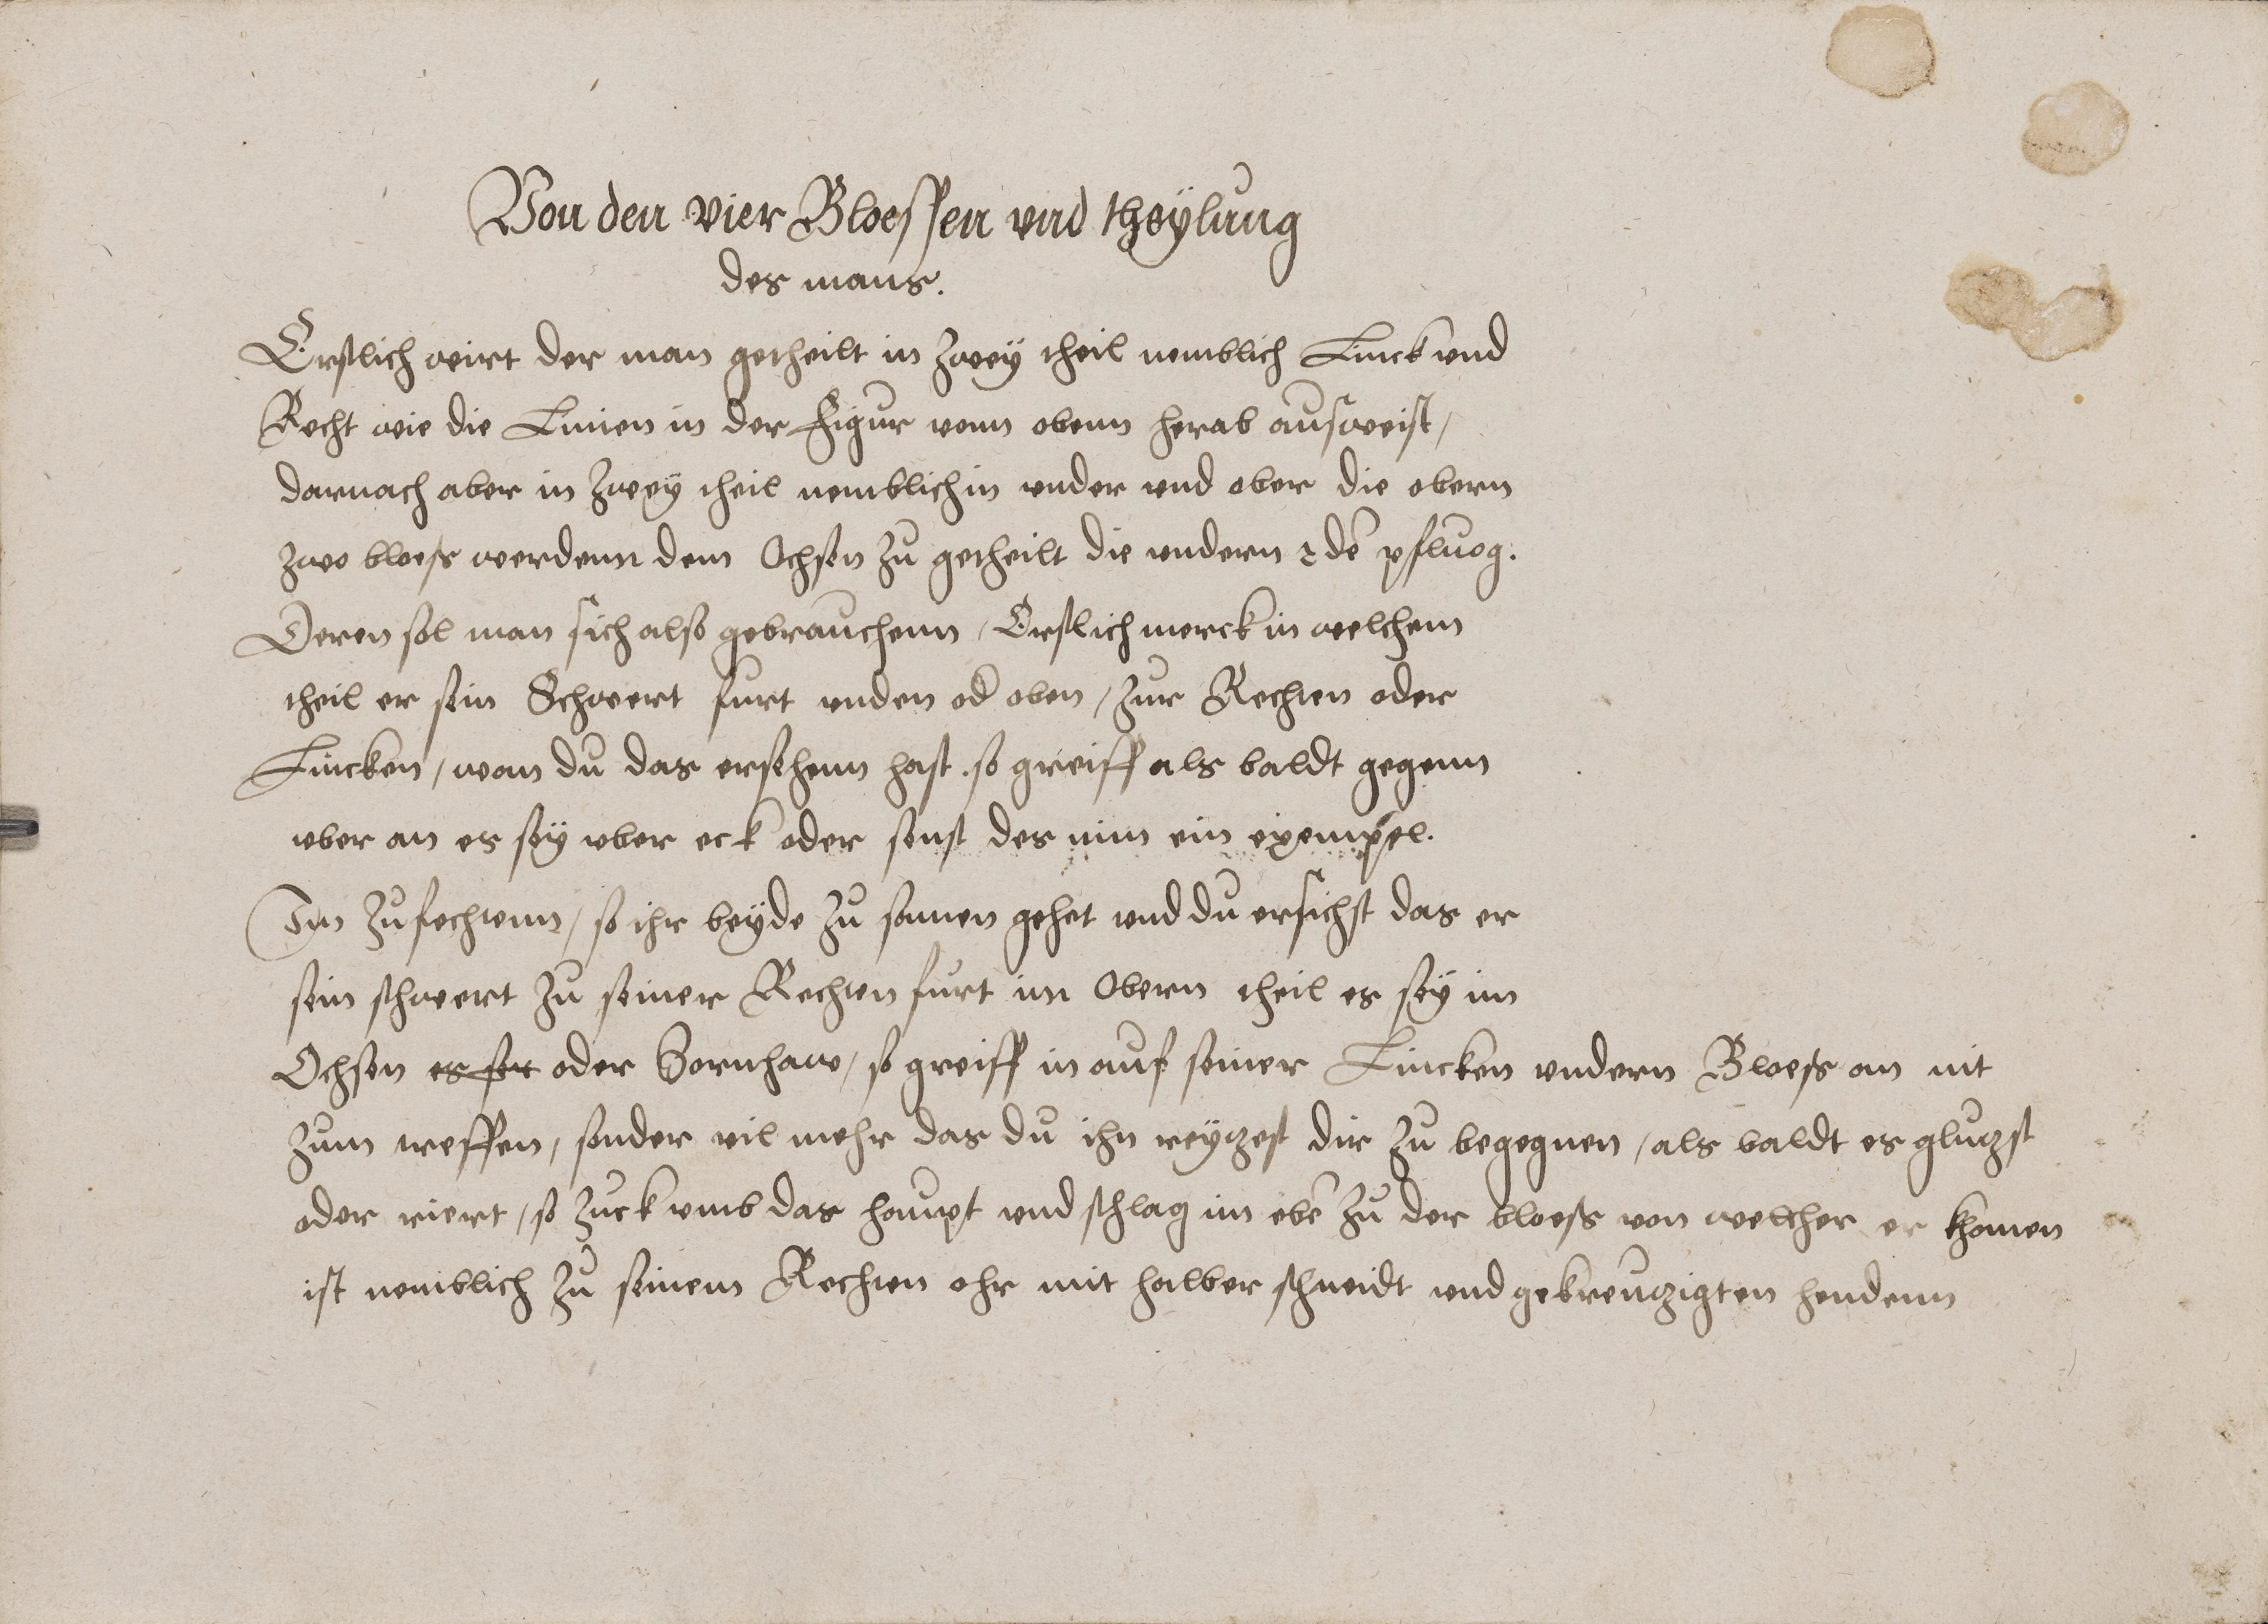 Von den vier Bloessen vnd theÿlung
des mans.
Erstlich wirt der man getheilt in zweÿ theil nemblich Linck vnd
Recht wie die Linien in der Figur vonn obenn herab ausweist /
darnach aber in zweÿ theil nemblich in vnder vnd ober die obern
zwo bloess werdenn dem Ochsen zu getheilt die vndern 2 dē pfluog.
Deren sol man sich also gebrauchenn / Erstlich merck in welchem
theil er sein Schwert furt vnden od oben / zur Rechten oder
Lincken / wan du das ersehenn hast . so greiff als baldt gegenn
vber an es sey vber eck oder sonst des nim ein exempel.
Im zufechtenn / so ihr beÿde zu samen gehet vnd du ersichst das er
sein schwert zu seiner Rechten furt im Obern theil es seÿ im
Ochsen es seÿ oder Zornhaw / so greiff in auf seiner Lincken vndern Bloess an nit
zum treffen / sonder vil mehr das du ihn reytzest dir zu begegnen / als baldt es glutzst
oder riert / so zuck vmb das haupt vnd schlag im ebē zu der bloess von welcher er khomen
ist nemblich zu seinem Rechten ohr mit halber schneidt vnd gekreutzigten hendenn